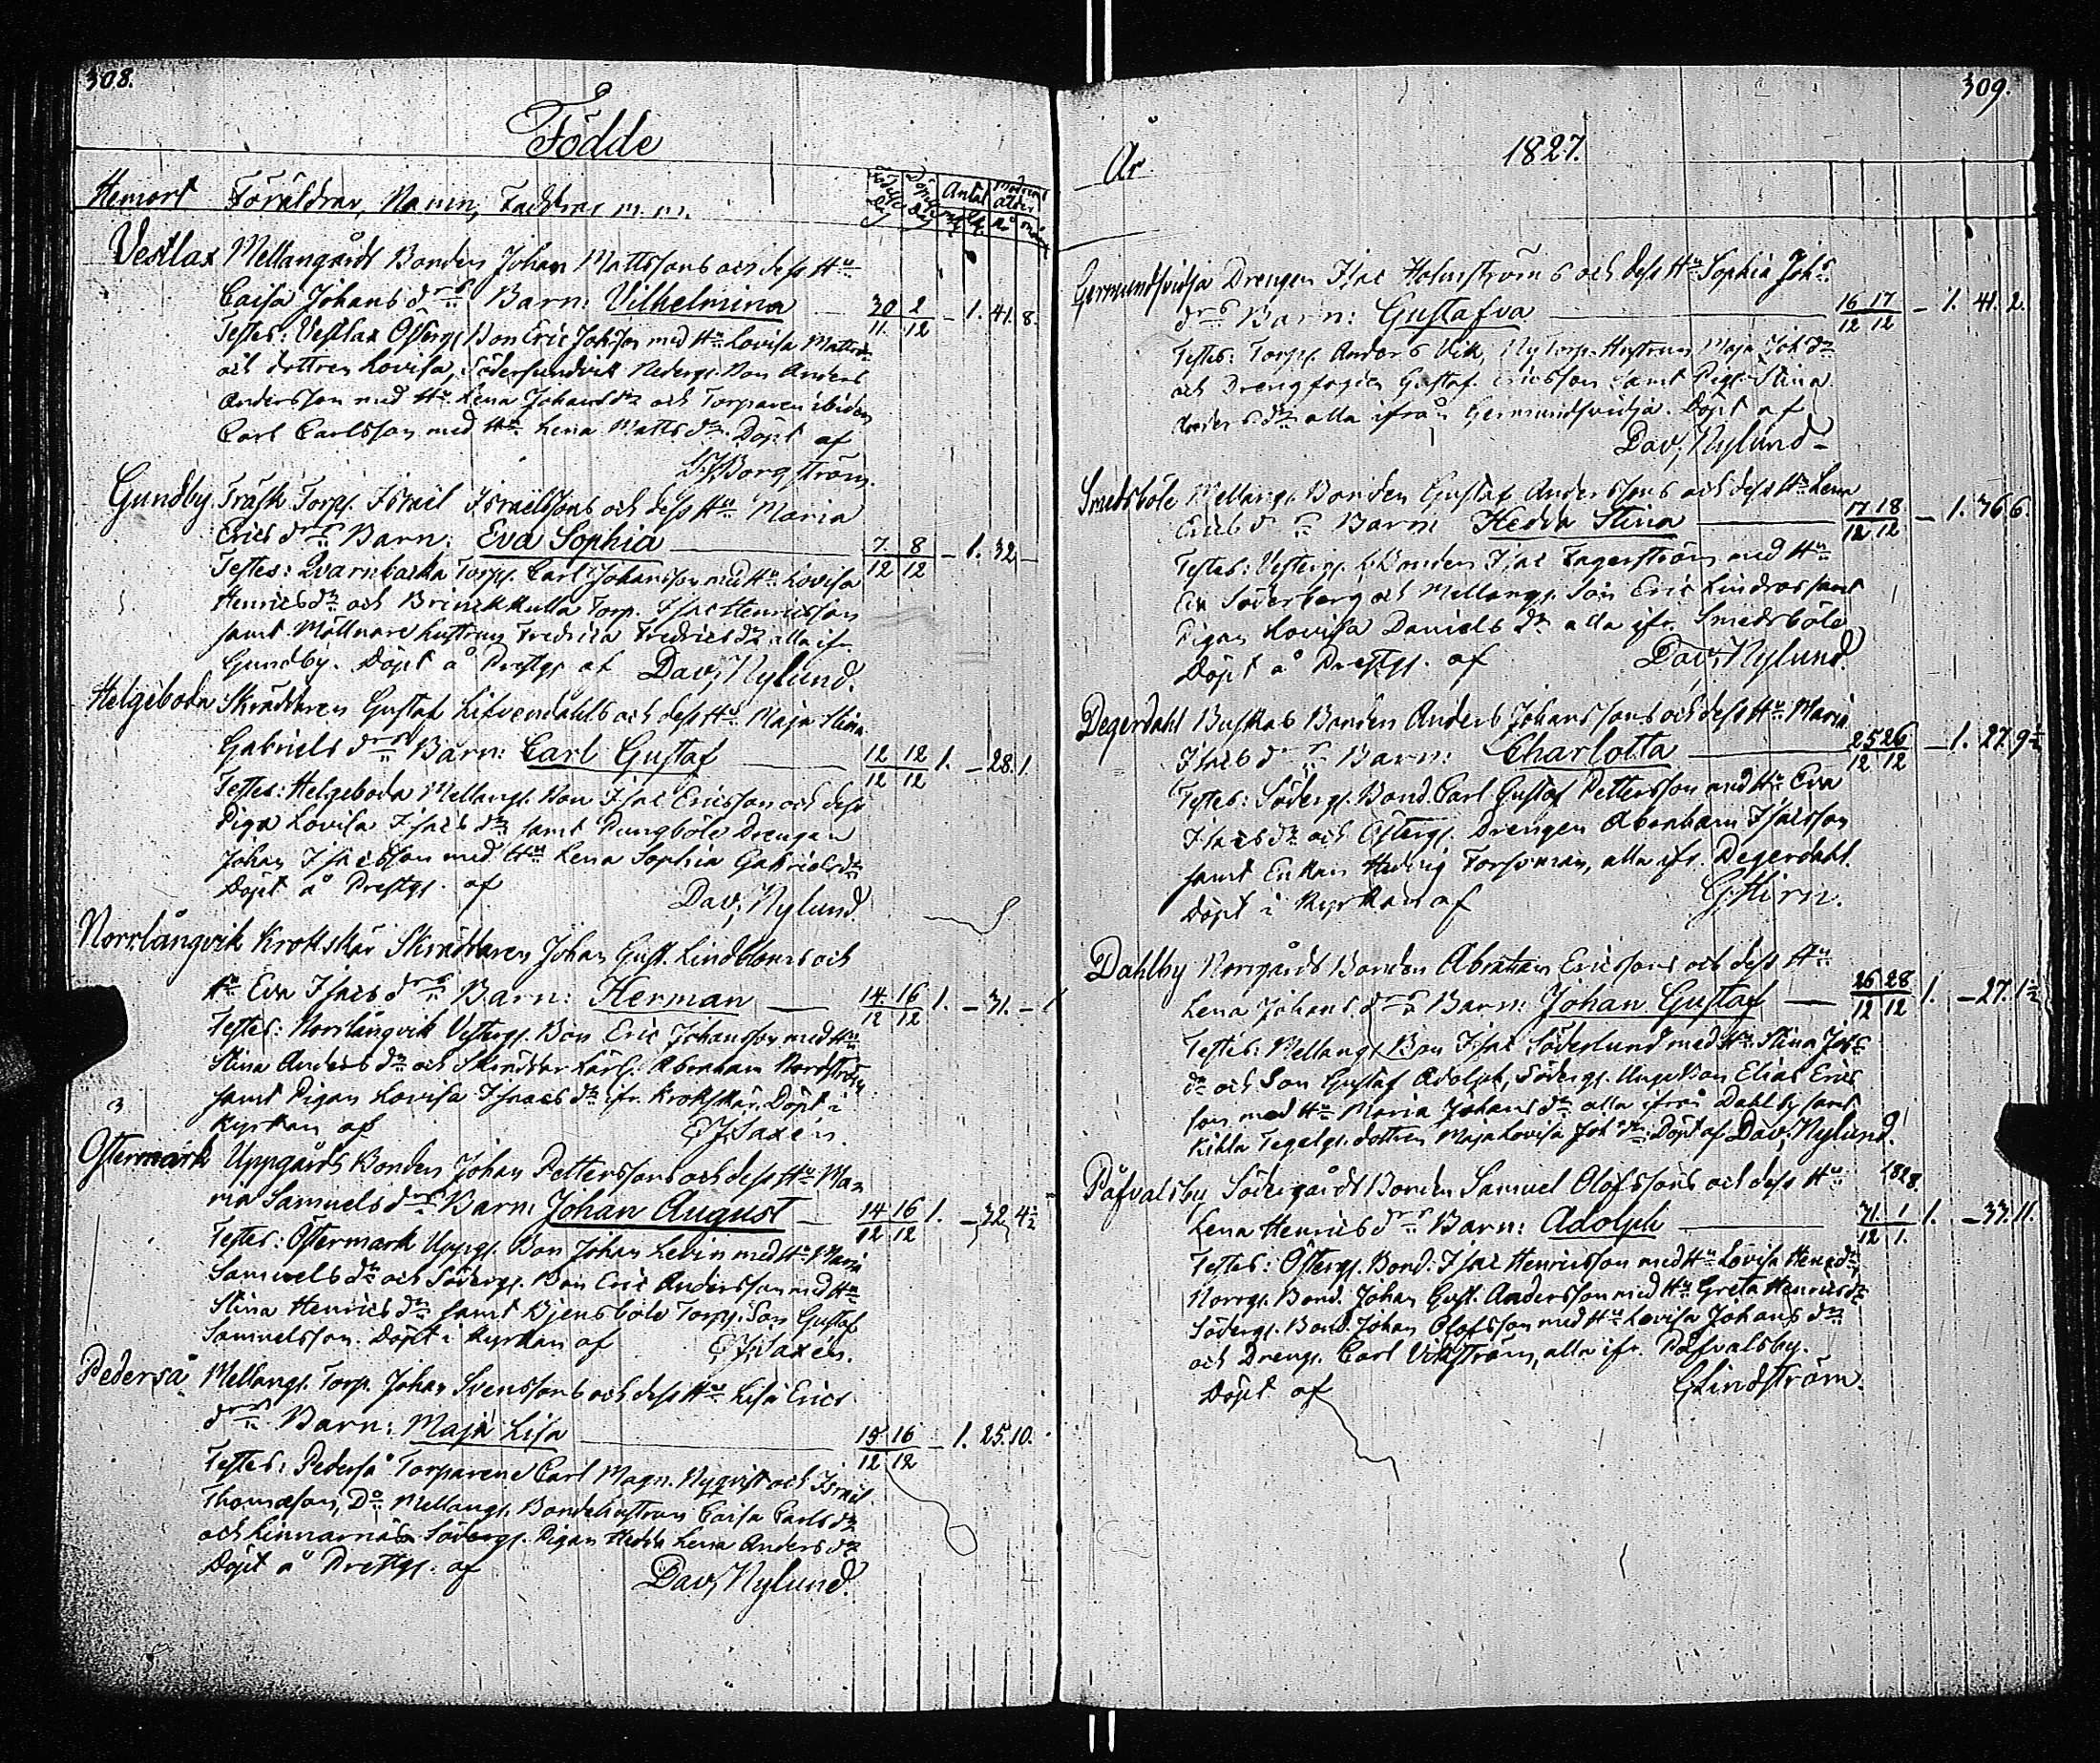 308.
Födde
Hemort Föräldrar, Namn, Faddrar m.m. Födelse Dag Döpelse Dag Antal Modrens ålder
Vestlax Mellangårds Bonden Johan Mattssons och dess Hu
Caisa Johans drs Barn: Vilhelmina 30/11 2/12 – 1. 41. 8.
Testes: Vestlax Österg. Bon Eric Johsson med Hu Lovisa Matts dr
och dottren Lovisa, Södersundvik Nederg. Bon Anders
Andersson med Hu Lena Johans dr och Torparen ibidem
Carl Carlsson med Hu Lena Matts dr. Döpt af
Borgström.
Gundby Träsk Torp. Israel Israelssons och dess Hu Maria
Erics drs Barn: Eva Sophia 7/12 8/12 – 1. 32 –
Testes: Qvarnbacka Torp. Carl Johansson med Hu Lovisa
Henrics dr och Brinckkulla Torp. Isac Henricsson
samt Möllnare hustrun Fredrica Fredrics dr alla ifr.
Gundby. Döpt å Prestg. af Dav; Nylund.
Helgeboda Skräddaren Gustaf Lifvendahls och dess Hu Maja Stina
Gabriels drs Barn: Carl Gustaf 12/12 12/12 1. – 28. 1.
Testes: Helgeboda Mellang. Bon Isac Ericsson och dess
Piga Lovisa Isacs dr samt Pungböle Drengen
Johan Isacsson med Hu Lena Sophia Gabriels dr
Döpt å Prestg. af Dav; Nylund.
Norrlångvik Krokskär Skräddaren Johan Gust. Lindbloms och
Hu Eva Isacs drs Barn: Herman 14/12 16/12 1. – 31. –
Testes: Norrlångvik Vesterg. Bon Eric Johansson med Hu
Stina Anders dr och Skräddar Lärl. Abraham Nordström
samt Pigan Lovisa Isaacs dr ifr. Krokskär. Döpt i
Kyrkan af Saxén.
Östermark Uppgårds Bonden Johan Petterssons och dess Hu Ma
ria Samuels drs Barn: Johan August 14/12 16/12 1. – 32. 4½
Testes: Östermark Uppg. Bon Johan Levin med Hu Maria
Samuels dr och Söderg. Bon Eric Andersson med Hu
Stina Henrics dr samt Bjensböle Torp. Son Gustaf
Samuelsson. Döpt i Kyrkan af Saxén.
Pederså Mellang. Torp. Johan Svenssons och dess Hu Lisa Erics
drs Barn: Maja Lisa 15/12 16/12 – 1. 25. 10.
Testes: Pederså Torparene Carl Magn. Nyqvist och Israel
Thomasson, Do Mellang. Bondehustrun Caisa Carls dr
och Linnarnäs Söderg. Pigan Hedda Lena Anders dr
Döpt å Prestg. af Dav; Nylund.
309.
År 1827.
Germundsvidja Drengen Isac Holmströms och dess Hu Sophia Johs
drs Barn: Gustafva 16/12 17/12 – 1. 41. 2.
Testes: Torp. Anders Vik, Ny Torp. Hustrun Maja Joh dr
och Dreng Gustaf Ericsson samt Pig. Stina
Anders dr alla ifrån Germundsvidja. Döpt af
Dav; Nylund
Smedsböle Mellang. Bonden Gustaf Anderssons och dess Hu Lena
Erics drs Barn: Hedda Stina 17/12 18/12 – 1. 36. 6.
Testes: Vesterg. Bonden Isac Fagerström med Hu
Eva Söderberg och Mellang. Son Eric Lindros samt
Pigan Lovisa Daniels dr alla ifr. Smedsböle
Döpt å Prestg. af Dav; Nylund.
Degerdahl Buskas Bonden Anders Johanssons och dess Hu Maria
Isacs drs Barn: Charlotta 25/12 26/12 – 1. 27. 9½
Testes: Söderg. Bond. Carl Gustaf Pettersson med Hu Eva
Isacs dr och Österg. Drengen Abraham Isacsson
samt Enkan Hedvig Forsman, alla ifr. Degerdahl.
Döpt i Kyrkan af G. Hirn.
Dahlby Norrgårds Bonden Abraham Ericssons och dess Hu
Lena Johans drs Barn: Johan Gustaf 26/12 28/12 1. – 27. 1½
Testes: Mellang. Bon Isac Söderlund med Hu Stina Johs
dr och Son Gustaf Adolph, Söderg. Unge Bon Elias Erics
son med Hu Maria Johans dr alla ifrån Dahlby samt
Kihla Tegelg. dottren Maja Lovisa Joh dr. Döpt af Dav; Nylund.
Påfvalsby Södergårds Bonden Samuel Olofssons och dess Hu 1828.
Lena Henrics drs Barn: Adolph 31/12 1/1. 1. – 37. 11.
Testes: Österg. Bond. Isac Henricsson med Hu Lovisa Henr. dr,
Norrg. Bond. Johan Gust. Andersson med Hu Greta Henrics dr
Söderg. Bond. Johan Olofsson med Hu Lovisa Johans dr
och Dreng. Carl Vikström, alla ifr. Påfvalsby.
Döpt af G Lindström.